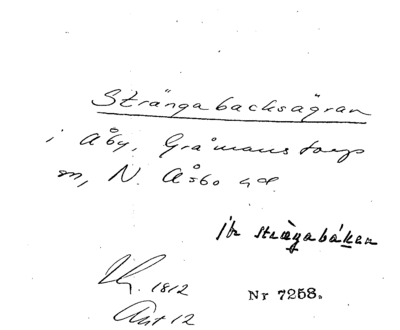 Stränga backsägran
i Åby, Gråmanstorp
sn, N. Åsbo hd.
jfr strängabáken
1812
Ant 12
Nr 7258.